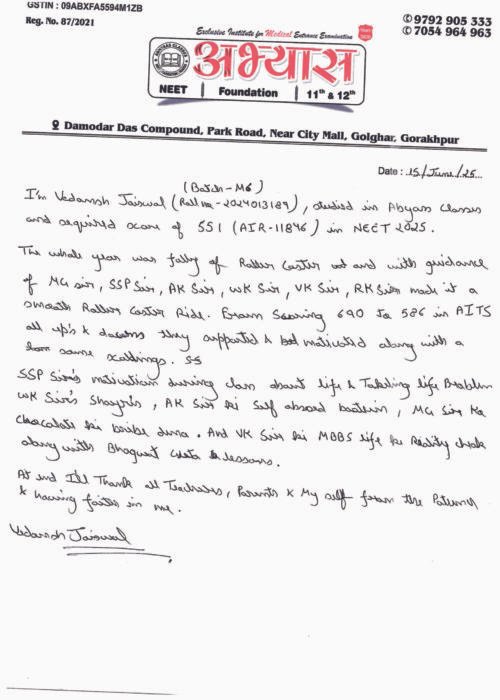 GSTIN : 09ABXFA5594M1ZB
Reg. No. 87/2021
Exclusive Institute for Medical Entrance Examination
अभ्यास
NEET | Foundation | 11th & 12th
9792 905 333
7054 964 963
Damodar Das Compound, Park Road, Near City Mall, Golghar, Gorakhpur
Date : 15/June/25
(Batch-M6)
I'm Vedansh Jaiswal (Roll no - 2024013189), studied in Abyass Classes
and acquired score of 551 (AIR-11846) in NEET 2025.
The whole year was fully of Roller Coster and with guidance
of MG sir, SSP Sir, AK Sir, WK Sir, VK Sir, RK Sir made it a
smooth Roller Coster Ride. From Scoring 690 to 586 in AITS
all up's & downs they supported & motivated along with a
some
SSP Sir's motivation during class about life & Tackling life Problem
WK Sir's Shayri's, AK Sir ki Self baatein, MG Sir Ka
Chocolate ki bribe dena. And VK Sir ki MBBS life ki Reality check
along with Bhagwat Geeta lessons.
At end I'll Thank all Teachers, Parents & My self from the Patience
& having faith in me.
Vedansh Jaiswal